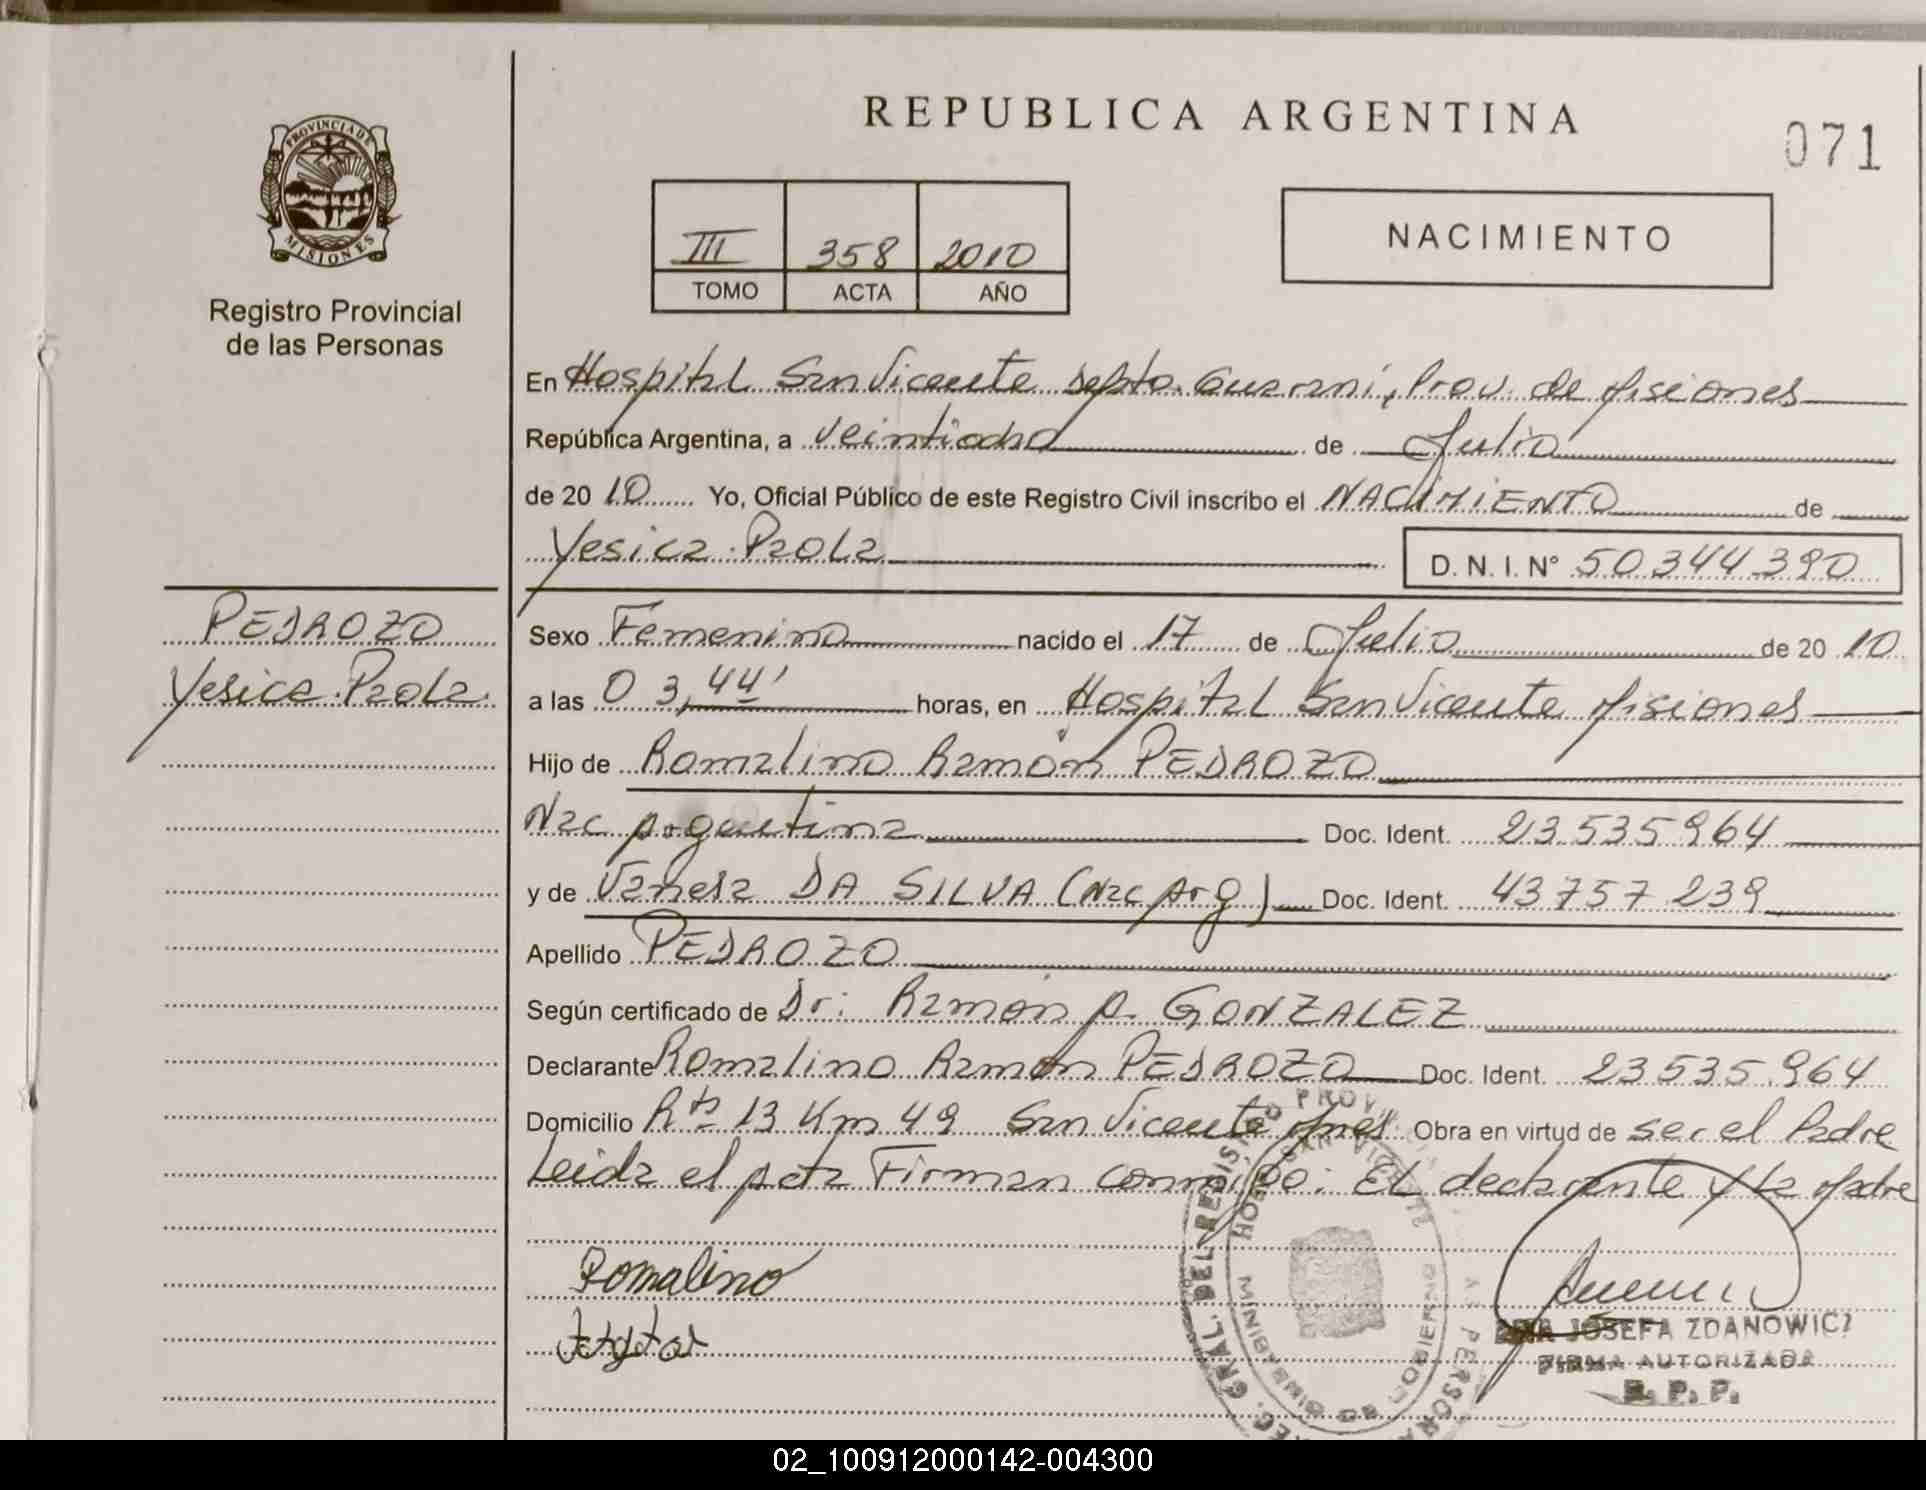 REPUBLICA ARGENTINA
071
PROVINCIA DE MISIONES
Registro Provincial
de las Personas
III 358 2010
TOMO ACTA AÑO
NACIMIENTO
En Hospital San Vicente Depto. Guaraní, Prov. de Misiones
República Argentina, a veintiocho de Julio
de 2010 Yo, Oficial Público de este Registro Civil inscribo el NACIMIENTO de
Yesica Paola D.N.I. N° 50.344.390
PEDROZO
Yesica Paola
Sexo Femenino nacido el 17 de Julio de 2010
a las 03,44' horas, en Hospital San Vicente Misiones
Hijo de Romalino Ramón PEDROZO
Nac Argentina Doc. Ident. 23.535.964
y de Vanesa DA SILVA (Nac Arg) Doc. Ident. 43757239
Apellido PEDROZO
Según certificado de Dr: Ramón A. GONZALEZ
Declarante Romalino Ramón PEDROZO Doc. Ident. 23535.964
Domicilio Rta 13 Km 49 San Vicente Mnes Obra en virtud de ser el Padre
Leida el Acta Firman conmigo: El declarante y la Madre
Romalino
JOSEFA ZDANOWICZ
FIRMA AUTORIZADA
R. P. P.
GRAL. DEL REGIS PROV
GOBIERNO
02_100912000142-004300